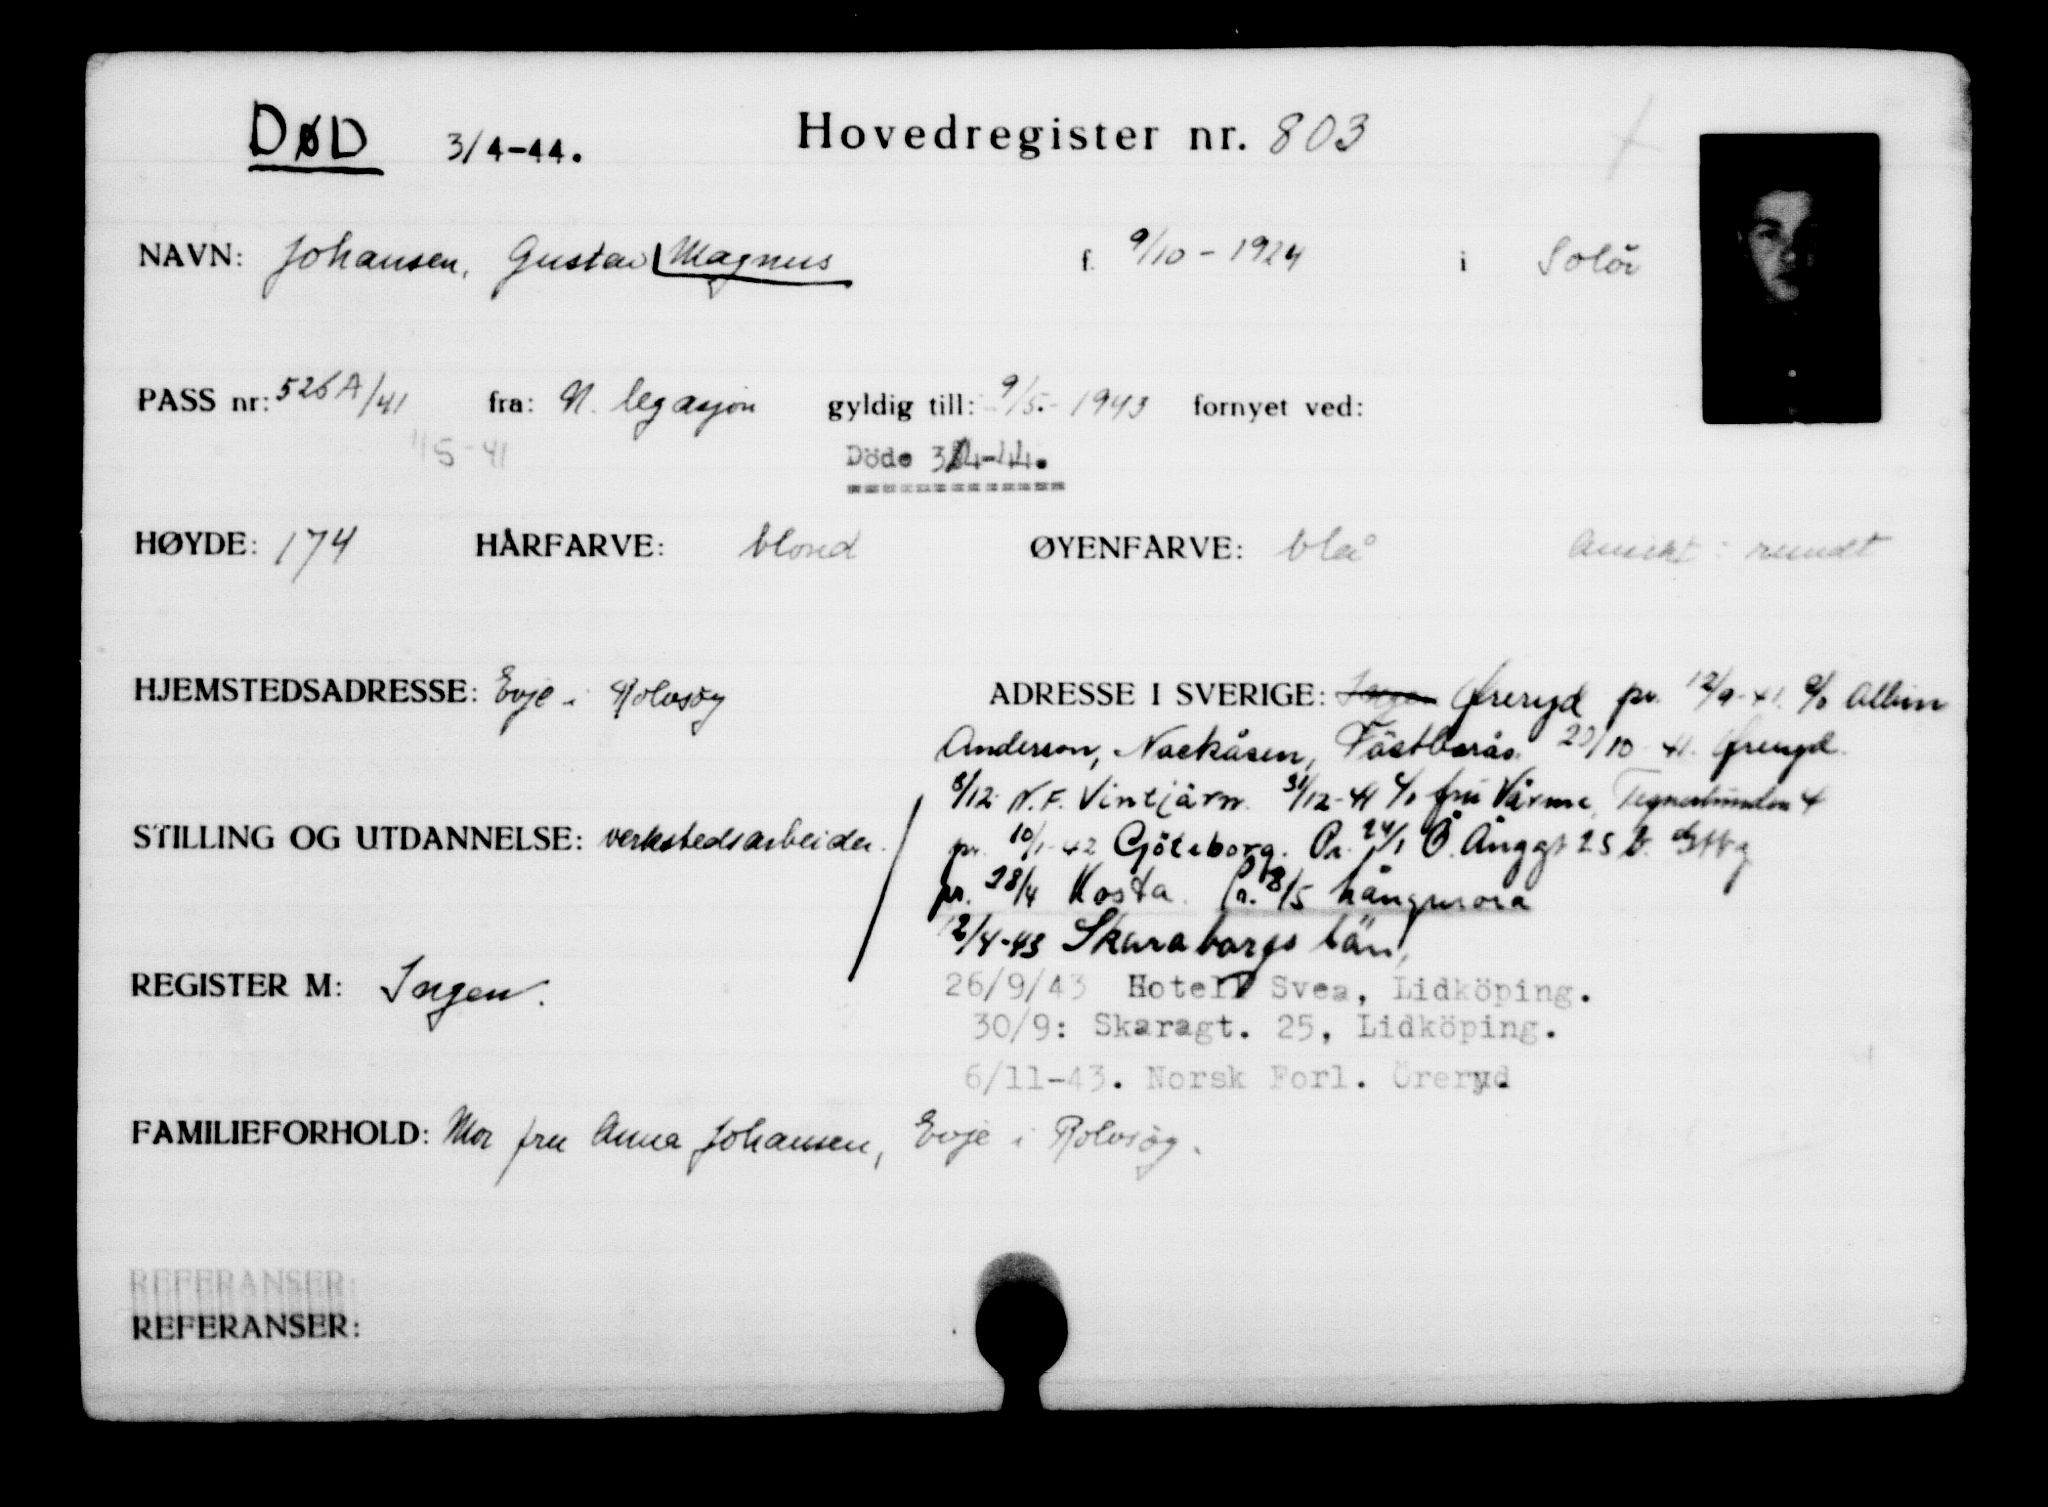 DØD 3/4-44. Hovedregister nr. 803
NAVN: Johansen, Gustav Magnus f. 9/10 - 1924 i Solör
PASS nr: 526A/41 fra: N. legasjon gyldig till: 9/5- 1943 fornyet ved:
11/5-41
Döde 3/4-44.
HØYDE: 174 HÅRFARVE: blond ØYENFARVE: blå Ansikt: rundt
HJEMSTEDSADRESSE: Evje i Rolvsøy
ADRESSE I SVERIGE: Øreryd pr. 12/9-41. c/o Albin
Anderson, Nackåsen, 10-41. Øreryd.
8/12. N.F. Vintjärn. 31/12-41 c/o fru Värme, Tegnerlunden 4
STILLING OG UTDANNELSE: verkstedsarbeider.
pr. 10/1-42 Göteborg. Pr. 24/1 Ö. Änggt 25 b. Gtbg
pr. 28/4 Kosta. Pr. 8/5 Långmora
12/4-43 Skaraborgs län,
REGISTER M: Ingen.
26/9/43 Hotell Svea, Lidköping.
30/9: Skaragt. 25, Lidköping.
6/11-43. Norsk Forl. Öreryd
FAMILIEFORHOLD: Mor fru Anna Johansen, Evje i Rolvsøy.
REFERANSER:
REFERANSER: